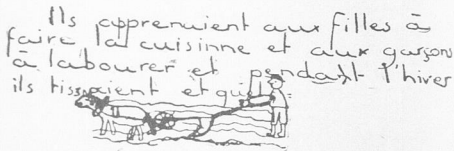 Ils apprenuient aux filles à
faire la cuisinne et aux garçons
à labourer et pendant l'hiver
ils tissaient et